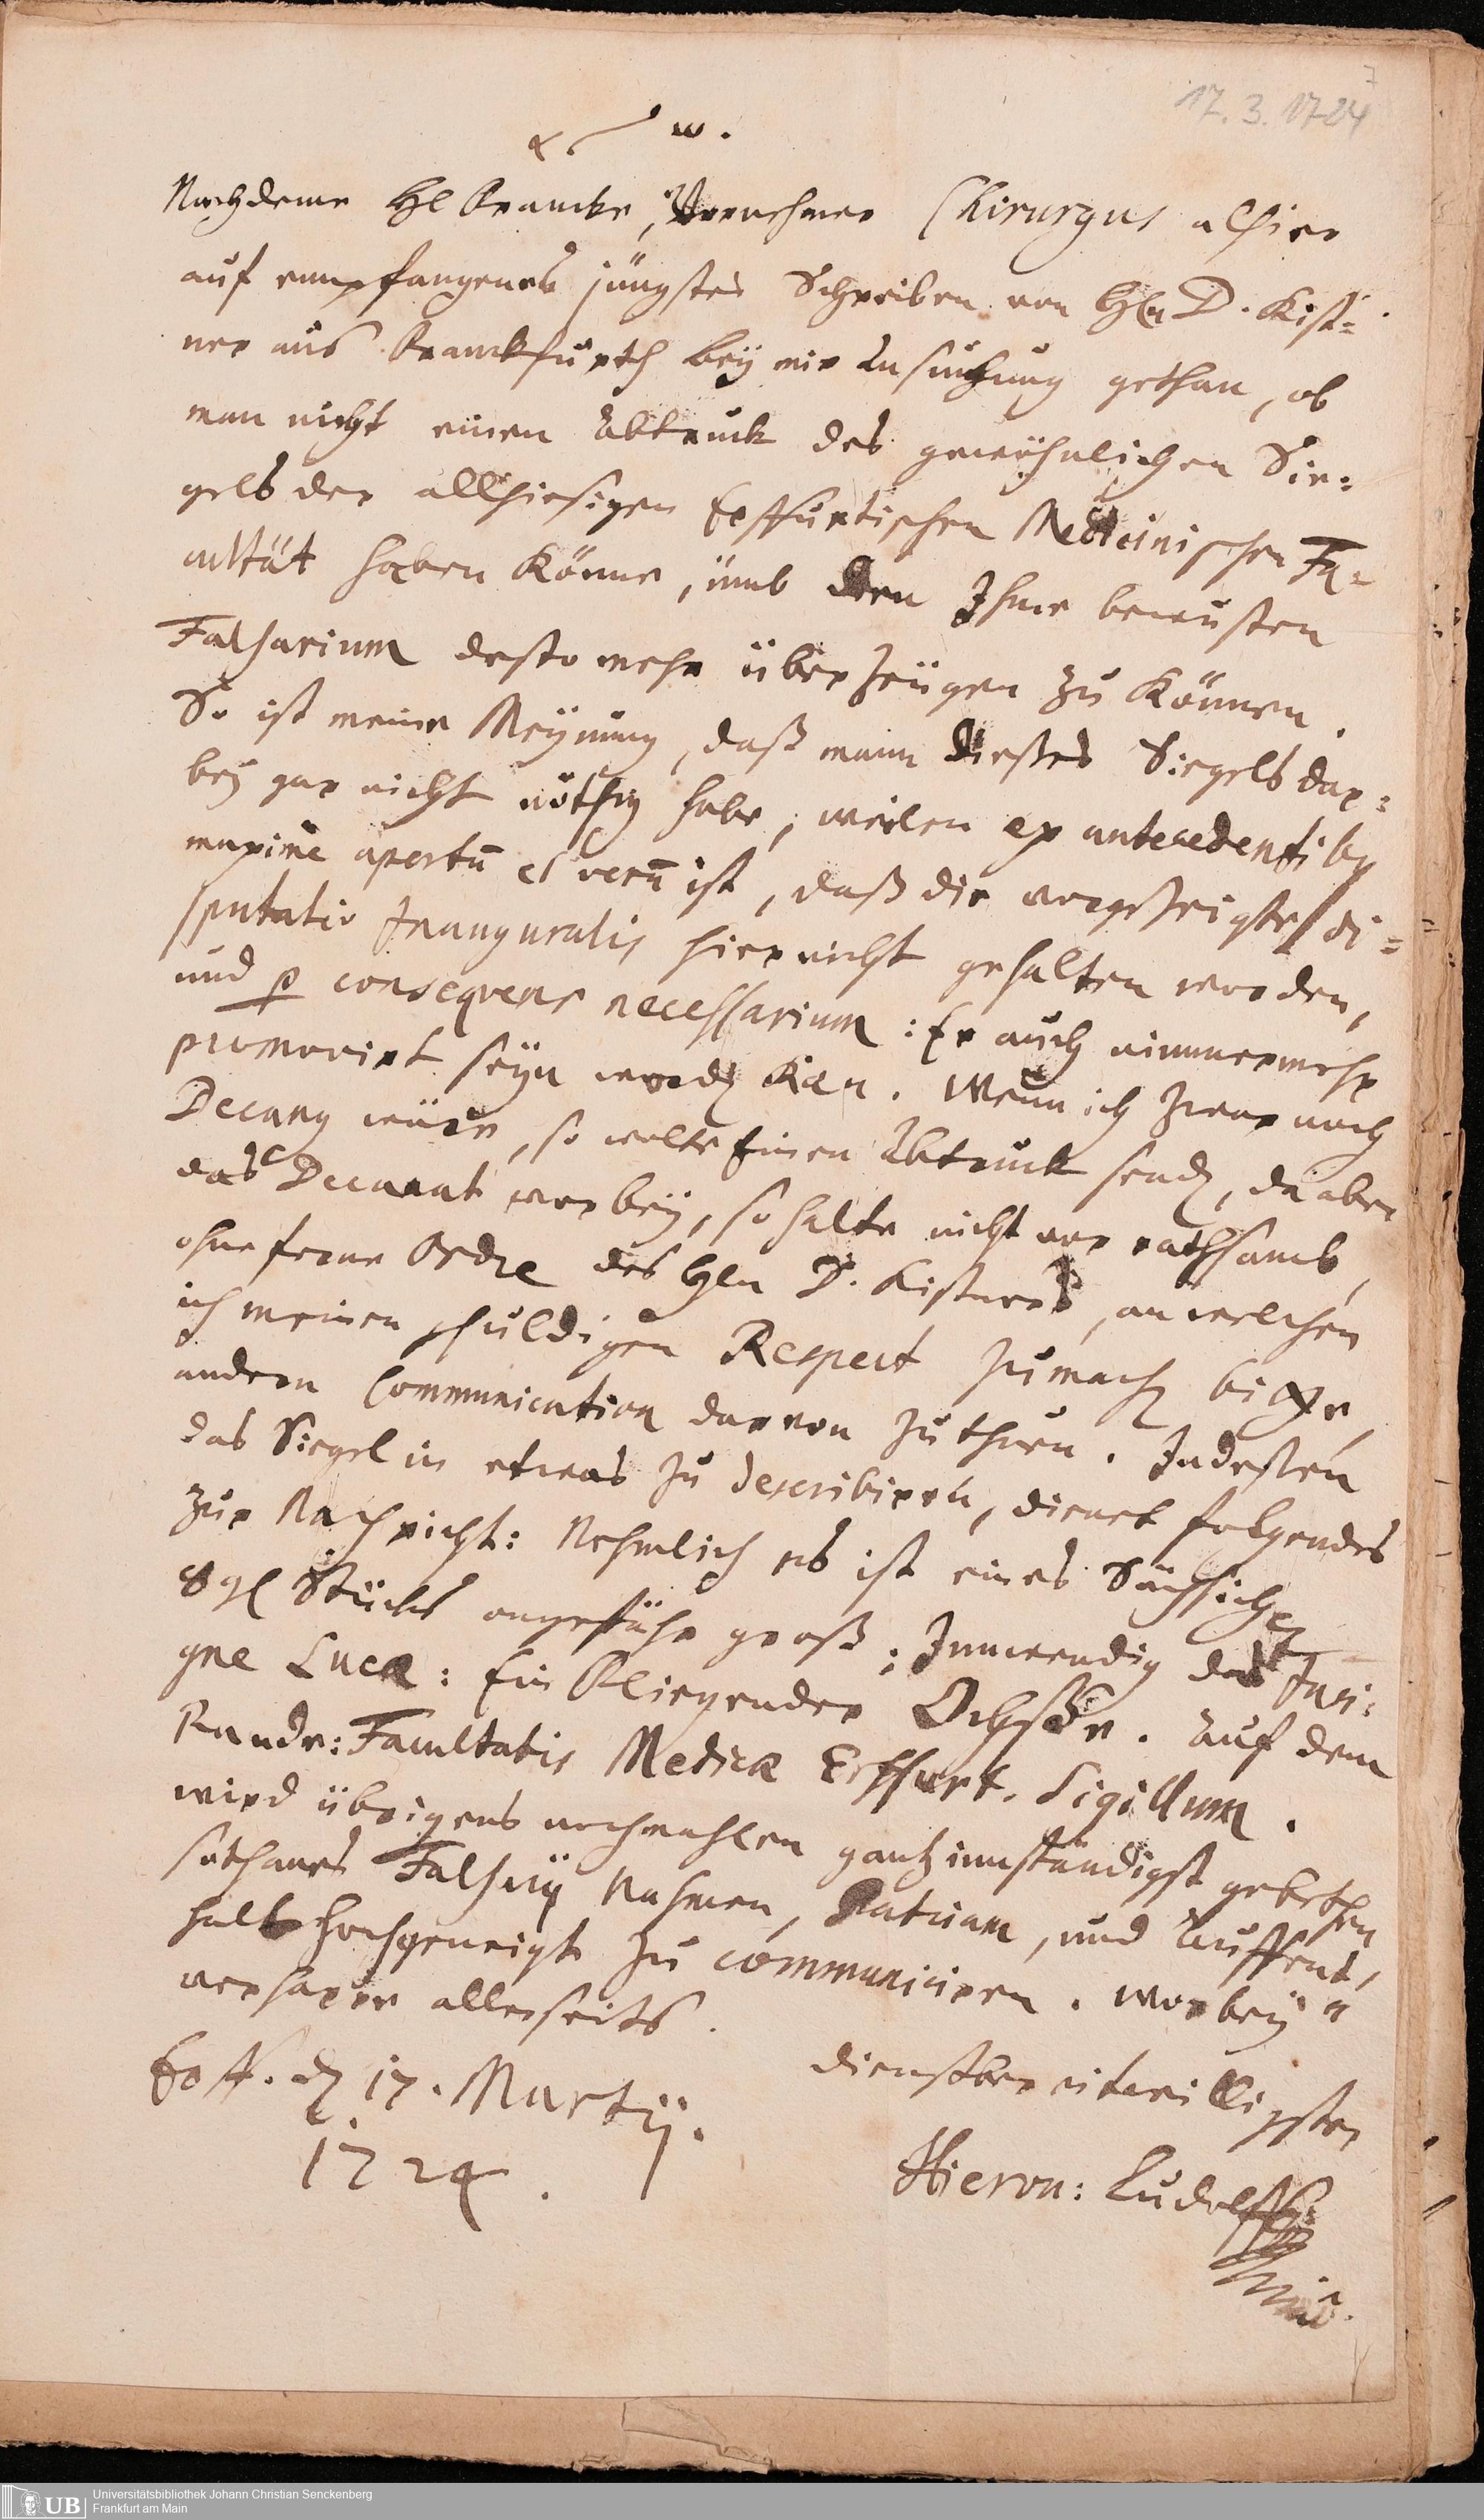 7
17. 3. 1724
Nachdeme H. Francke, Vornehmer Chirurgus alhier
auf empfangenes jüngstes Schreiben von Hln D. Kist=
ner aus Franckfurth bey mir Ansuchung gethan, ob
man nicht einen Abtruck des gewöhnlichen Sie=
gels der allhiesigen Erffurtischen Medicinischen Fa=
cultät haben könne, umb den Ihme bewusten
Falsarium desto mehr überzeugen zu können.
So ist meine Meynung, daß mann dieses Siegels dar=
bey gar nicht nöthig habe, weilen ex antecedentibus
maxime apertū et verū ist, daß die vorgezeigte di=
sputatio Inauguralis hier nicht gehalten worden,
und p consequens necessarium: Er auch nimmermehr
promovirt seyn word. kan. Wenn ich zwar noch
Decanus wäre, so wolte Einen Abtruck send., da aber
das Decanat vorbey, so halte nicht vor rathsamb,
ohne ferne Ordre des Hln D. Kistners, an welchen
ich meinen schuldigen Respect zu mach. bitte,
andern Communication darvon zu thun. Indessen
das Siegel in etwas zu describiren, dienet folgendes
zur Nachricht: Nehmlich es ist eines Sächsichen
8 gl Stücks ongefähr groß; Innwendig das Insi=
gne Lucæ: Ein Fliegender Ochse. Auf dem
Rande: Facultatis Medicæ Erffurt. Sigillum.
wird übrigens nochmahlen gantz innständigst gebethen
sothanes Falsarij Nahmen, Patriam, und Auffent=
halt hochgeneigt zu communiciren. Worbey
verharre allerseits.
Erff. d. 17. Martij.
1724.
dienstbereitwilligster
Hieron: Ludolff
UB
Universitätsbibliothek Johann Christian Senckenberg
Frankfurt am Main